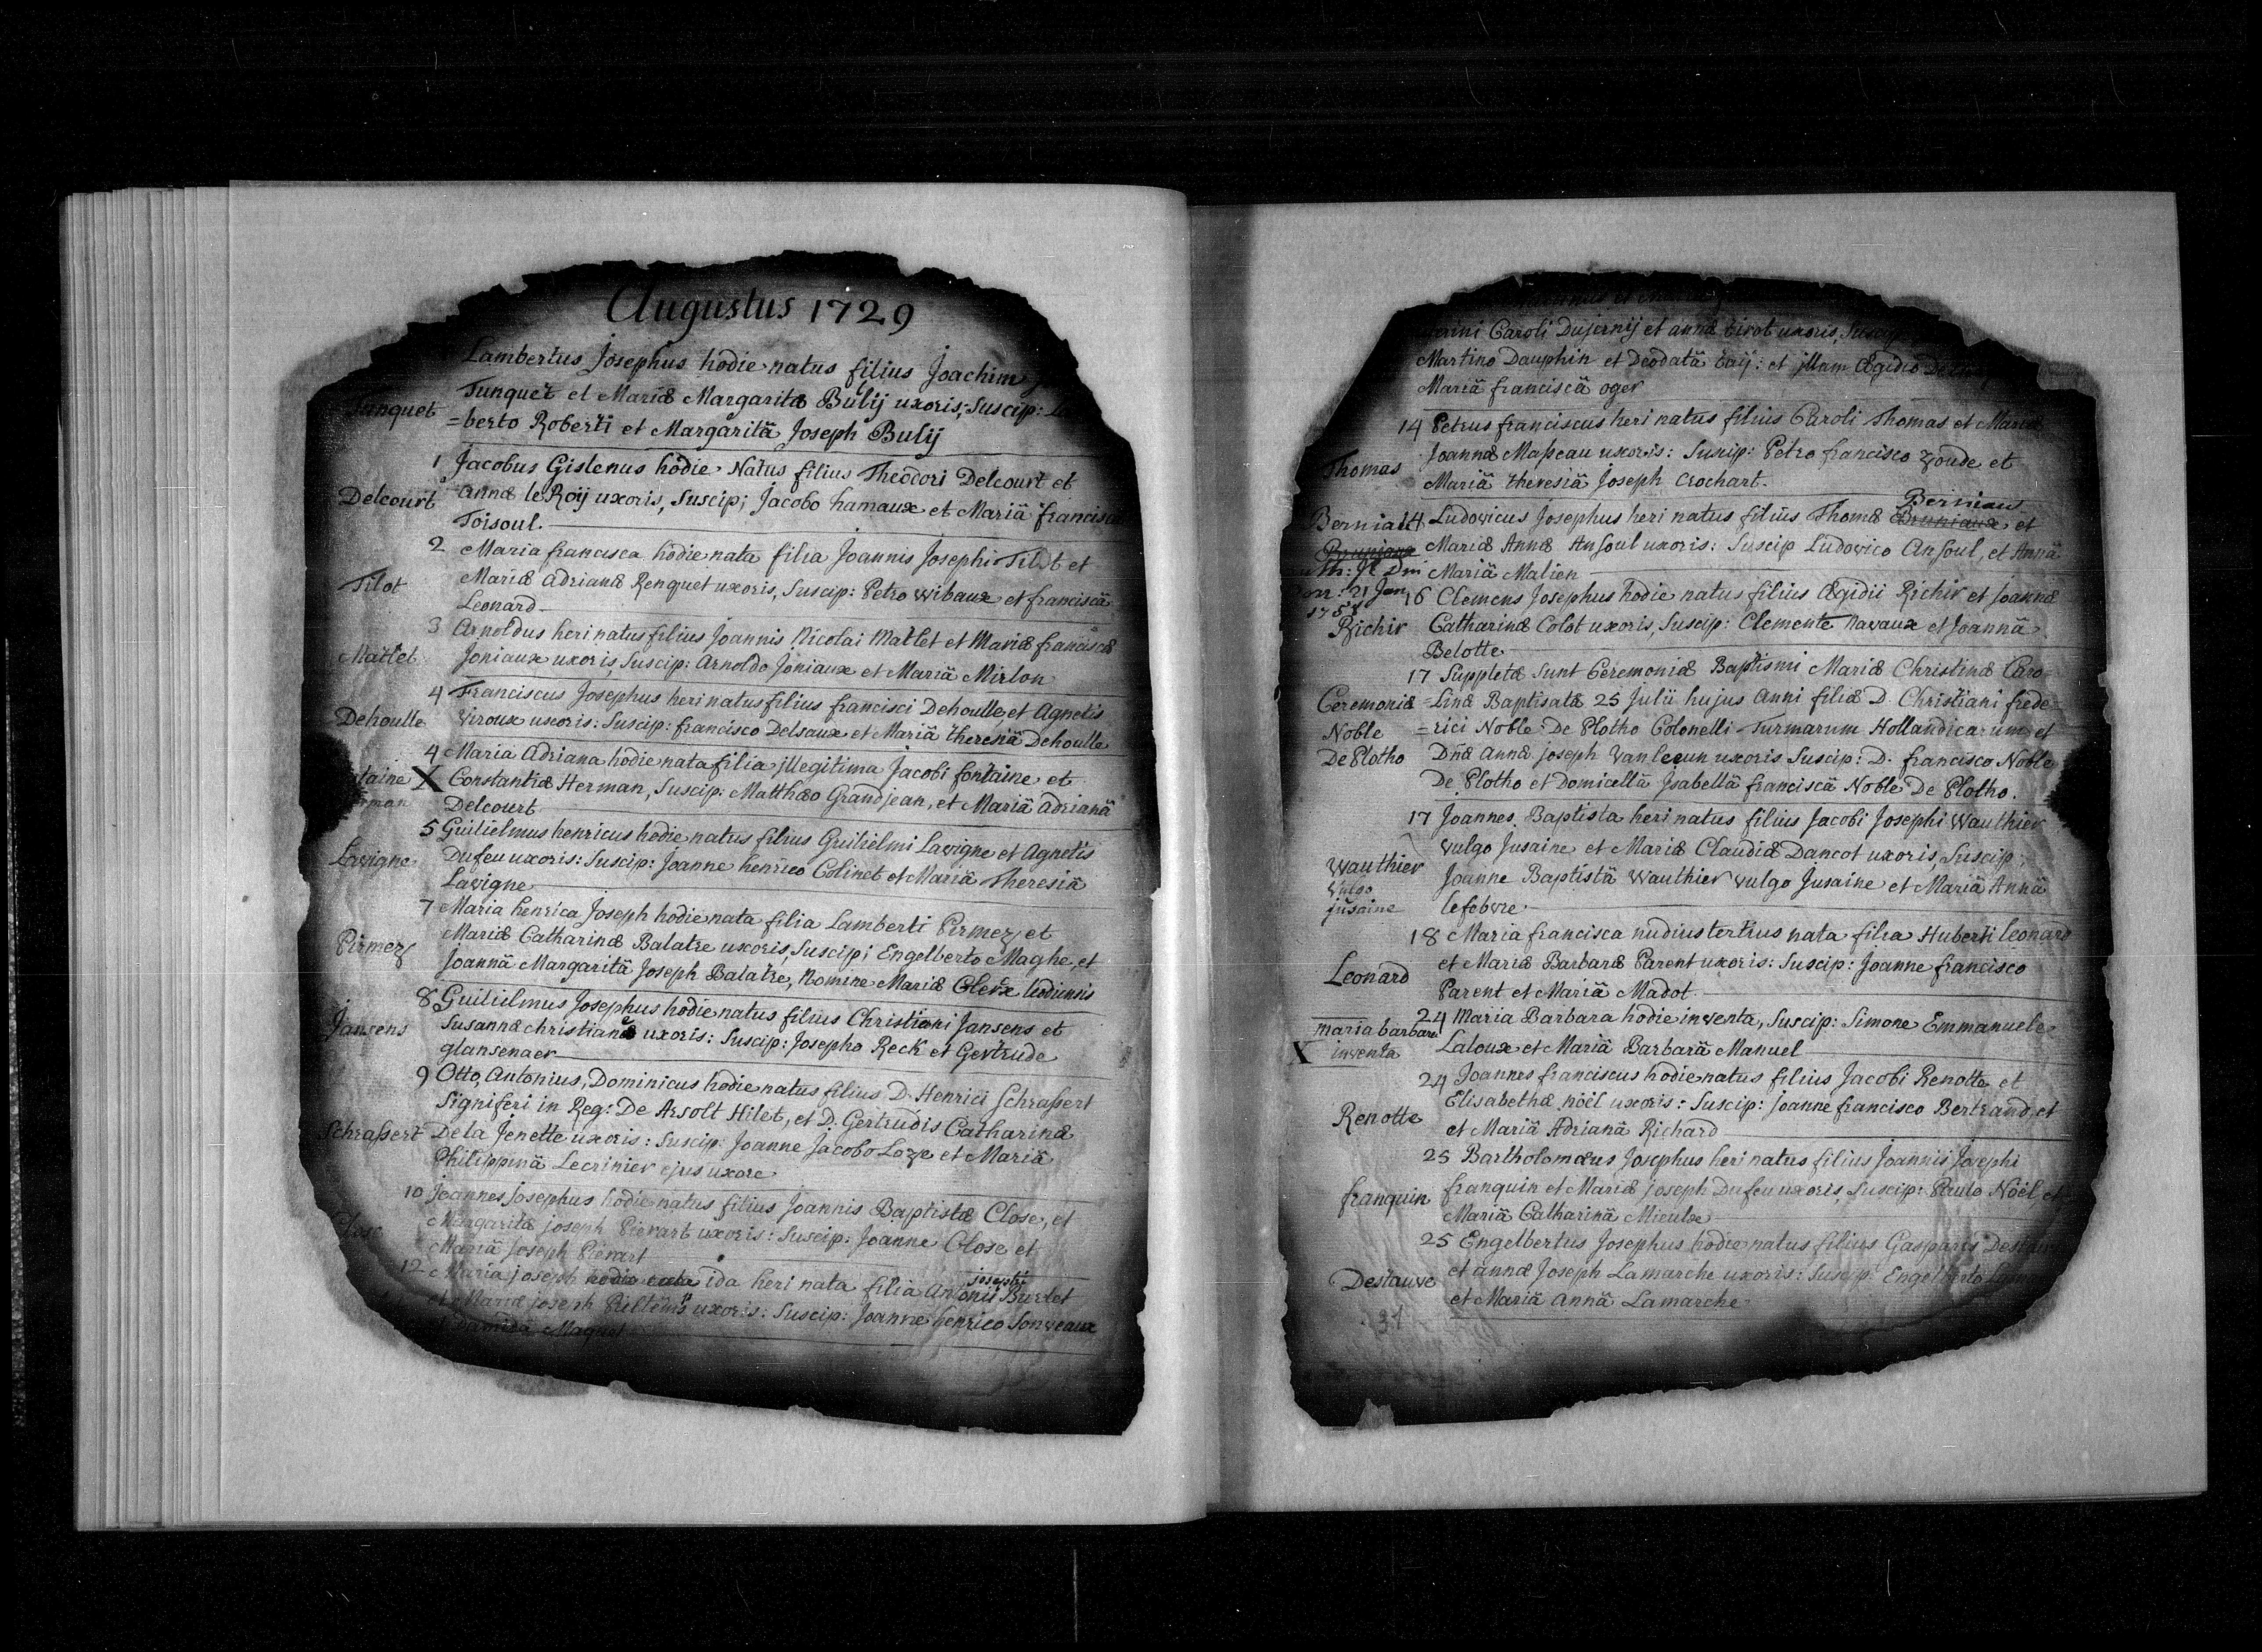 Augustus 1729
Lambertus Josephus hodie natus filius Joachim
Tunquet et Mariæ Margaritæ Bulij uxoris, Suscip:
Tunquet
=berto Roberti et Margaritâ Joseph Bulij
1 Jacobus Gislenus hodie Natus filius Theodori Delcourt et
Delcourt Annæ le Roij uxoris, Suscip; Jacobo hamaux et Mariâ francisca
Toisoul.
2 Maria francisca hodie nata filia Joannis Josephi Tilot et
Tilot Mariæ Adrianæ Renquet uxoris, Suscip: Petro Wibaux et franciscâ
Leonard
3 Arnoldus heri natus filius Joannis Nicolai Matlet et Mariæ franciscæ
Matlet Joniaux uxoris, Suscip: Arnoldo Joniaux et Mariâ Mirlon
4 Franciscus Josephus heri natus filius francisci Dehoulle et Agnetis
Dehoulle Viroux uxoris: Suscip: francisco Delsaux et Mariâ theresiâ Dehoulle
4 Maria Adriana hodie nata filia jllegitima Jacobi fontaine et
taine X Constantiæ Herman, Suscip: Matthæo Grandjean, et Mariâ Adrianâ
rman
Delcourt
5 Guilielmus henricus hodie natus filius Guilielmi Lavigne et Agnetis
Lavigne Dufeu uxoris: Suscip: Joanne henrico Colinet et Mariâ Theresiâ
Lavigne
7 Maria henrica Joseph hodie nata filia Lamberti Pirmez et
Pirmez Mariæ Catharinæ Balatre uxoris, Suscip; Engelberto Maghe, et
Joannâ Margaritâ Joseph Balatre, Nomine Mariæ leodiensis
8 Guilielmus Josephus hodie natus filius Christiani Jansens et
Jansens Susannæ christianæ uxoris: Suscip: Josepho Reck et Gertrude
glansenaer
9 Otto, Antonius, Dominicus hodie natus filius D. Henrici Schrassert
Signiferi in Reg: De Arsolt Hilet, et D. Gertrudis Catharinæ
Schrassert De la Jenette uxoris: Suscip: Joanne Jacobo Loze et Mariâ
Philippinâ Lecrinier ejus uxore
10 Joannes josephus hodie natus filius Joannis Baptistæ Close, et
Close Margaritæ joseph Pierart uxoris: Suscip: Joanne Close et
Mariâ Joseph Pierart
12 Maria joseph hodie nata ida heri nata filia Antonii josephi Burlet
et Mariæ joseph uxoris: Suscip: Joanne henrico Sonveaux
Maquet
Caroli Dujernij et annæ tirot uxoris,
Martino Dauphin et Deodatâ taij: et jllam Ægidio
Mariâ franciscâ oger
14 Petrus franciscus heri natus filius Caroli Thomas et Mariæ
Thomas Joannæ Masseau uxoris: Suscip: Petro francisco Zoude et
Mariâ theresiâ Joseph Crochart.
Berniaux
Berniau 14 Ludovicus Josephus heri natus filius Thomæ Bruniaux et
Bruniaux Mariæ Annæ Ansoul uxoris: Suscip Ludovico Ansoul, et Annâ
Mariâ Malien
21 Jan
16 Clemens Josephus hodie natus filius Ægidii Richir et joannæ
Richir Catharinæ Colot uxoris, Suscip: Clemente Navaux et Joannâ
Belotte
17 Suppletæ Sunt Ceremoniæ Baptismi Mariæ Christinæ Caro
Ceremoniæ =Linæ Baptisatæ 25 Julii hujus Anni filiæ D. Christiani frede=
Noble =rici Noble De Plotho Colonelli Turmarum Hollandicarum et
De Plotho Dñæ Annæ joseph Vanleeun uxoris Suscip: D. francisco Noble
De Plotho et Domicellâ Jsabellâ franciscâ Noble De Plotho.
17 Joannes Baptista heri natus filius Jacobi Josephi Wauthier
Vulgo Jusaine et Mariæ Claudiæ Dancot uxoris, Suscip;
Wauthier Joanne Baptistâ Wauthier vulgo Jusaine et Mariâ Annâ
Vulgo
jusaine lefebvre
18 Maria francisca nudius tertius nata filia Huberti leonard
et Mariæ Barbaræ Parent uxoris: Suscip: Joanne francisco
Leonard Parent et Mariâ Madot
24 Maria Barbara hodie inventa, Suscip: Simone Emmanuele
maria barbara
X inventa Laloux et Mariâ Barbarâ Manuel
24 Joannes franciscus hodie natus filius Jacobi Renotte et
Elisabethæ nöel uxoris: Suscip: joanne francisco Bertrand, et
Renotte et Mariâ Adrianâ Richard
25 Bartholomæus Josephus heri natus filius Joannis Josephi
franquin franquin et Mariæ joseph Dufeu uxoris, Suscip: Paulo Nöel, et
Mariâ Catharinâ
25 Engelbertus Josephus hodie natus filius Gasparis Destauve
Destauve et annæ Joseph Lamarche uxoris: Suscip: Engelberto
et Mariâ Annâ Lamarche
31